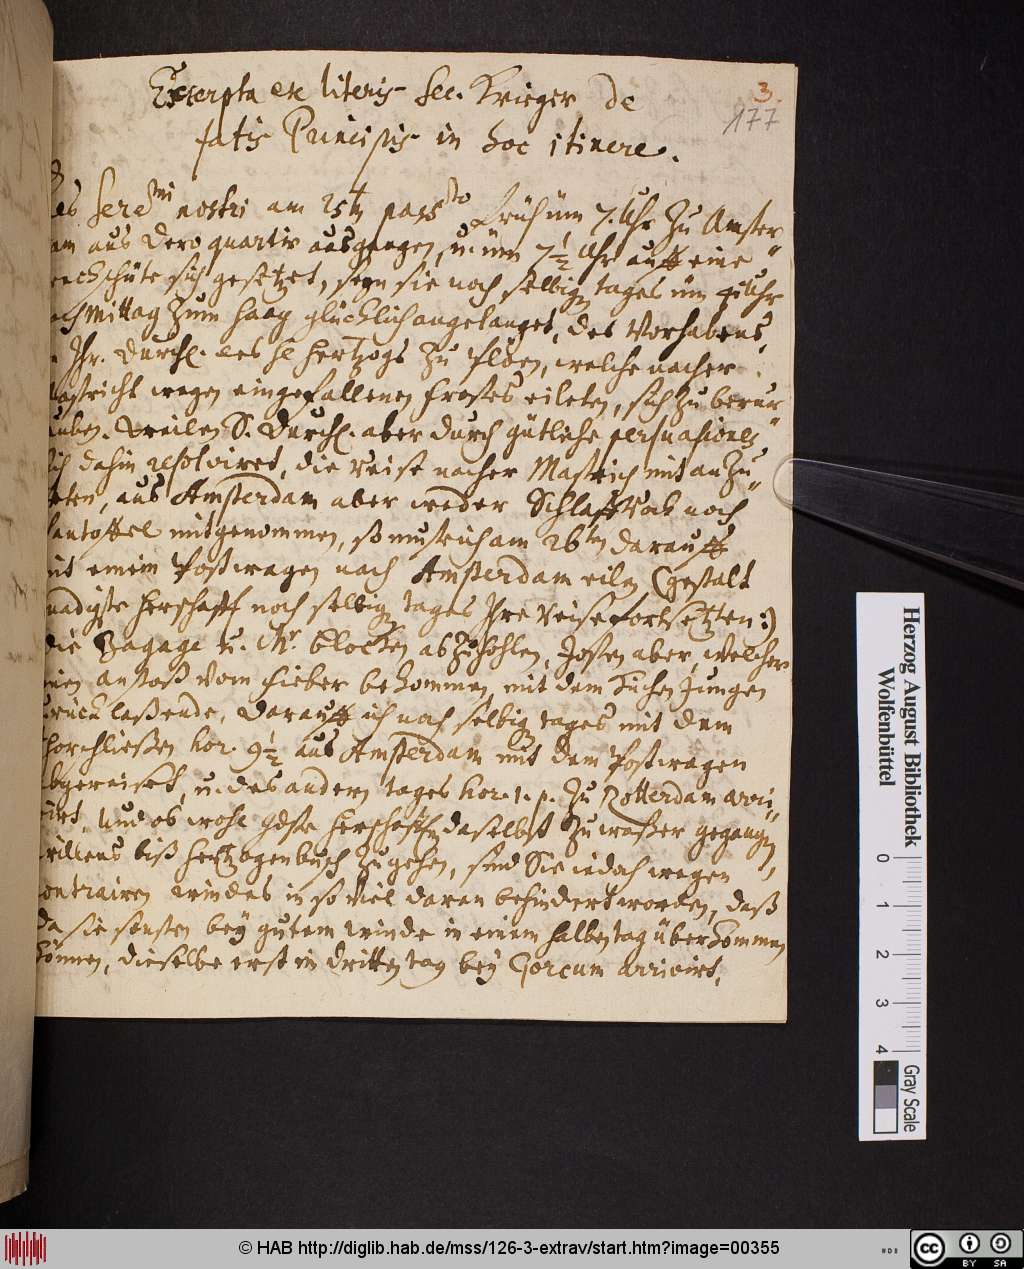 3.
177
Excerpta ex literis Sec. Krieger de
fatis Principis in hoc itinere.
Sere^mi nostri am 25t pass^to früh üm 7. Uhr zu Amster
am aus dero quartir ausgangen, u. üm 7½ Uhr auff eine
sich gesetzet, seyn sie noch selbig tages üm 4 Uhr
Mittag zum Haag glücklich angelanget, des Vorhabens,
Ihr. Durchl. des H Hertzogs zu Plöen, welche nacher
astricht wegen eingefallenen Frostes eileten, sich zu beur
auben. Weilen S. Durchl. aber durch gütliche persuasiones
ich dahin resolviret, die reise nacher Mastrich mit an zu
eten, aus Amsterdam aber weder Schlaffrock noch
antoffel mitgenommen, so must ich am 26ten darauff
it einem Postwagen nach Amsterdam eilen (gestalt
nädigste Herschafft noch selbig tages Ihre reise fortsetzten:)
die Bagage u. Mr. Blocken abzuhohlen, Josten aber, welcher
nen anstoß vom Fieber bekommen, mit dem Küchen Jungen
urück laßende, darauff ich noch selbig tages mit dem
hor. 9½ aus Amsterdam mit dem Postwagen
bgereiset, u. des andern tages hor. 1. p. zu Rotterdam arri
irt. Und ob wohl gdste Herschafft daselbst zu waßer gegangen,
willens biß Hertzogenbusch zu gehen, sind Sie iedoch wegen
ontrairen windes in so viel daran behindert worden, daß
da sie sonsten bey gutem winde in einem halben tag überkommen
können, dieselbe erst im dritten tag bey Gorcum arrivirt.
Herzog August Bibliothek
Wolfenbüttel
0 1 2 3 4
Gray Scale
© HAB http://diglib.hab.de/mss/126-3-extrav/start.htm?image=00355
cc BY SA